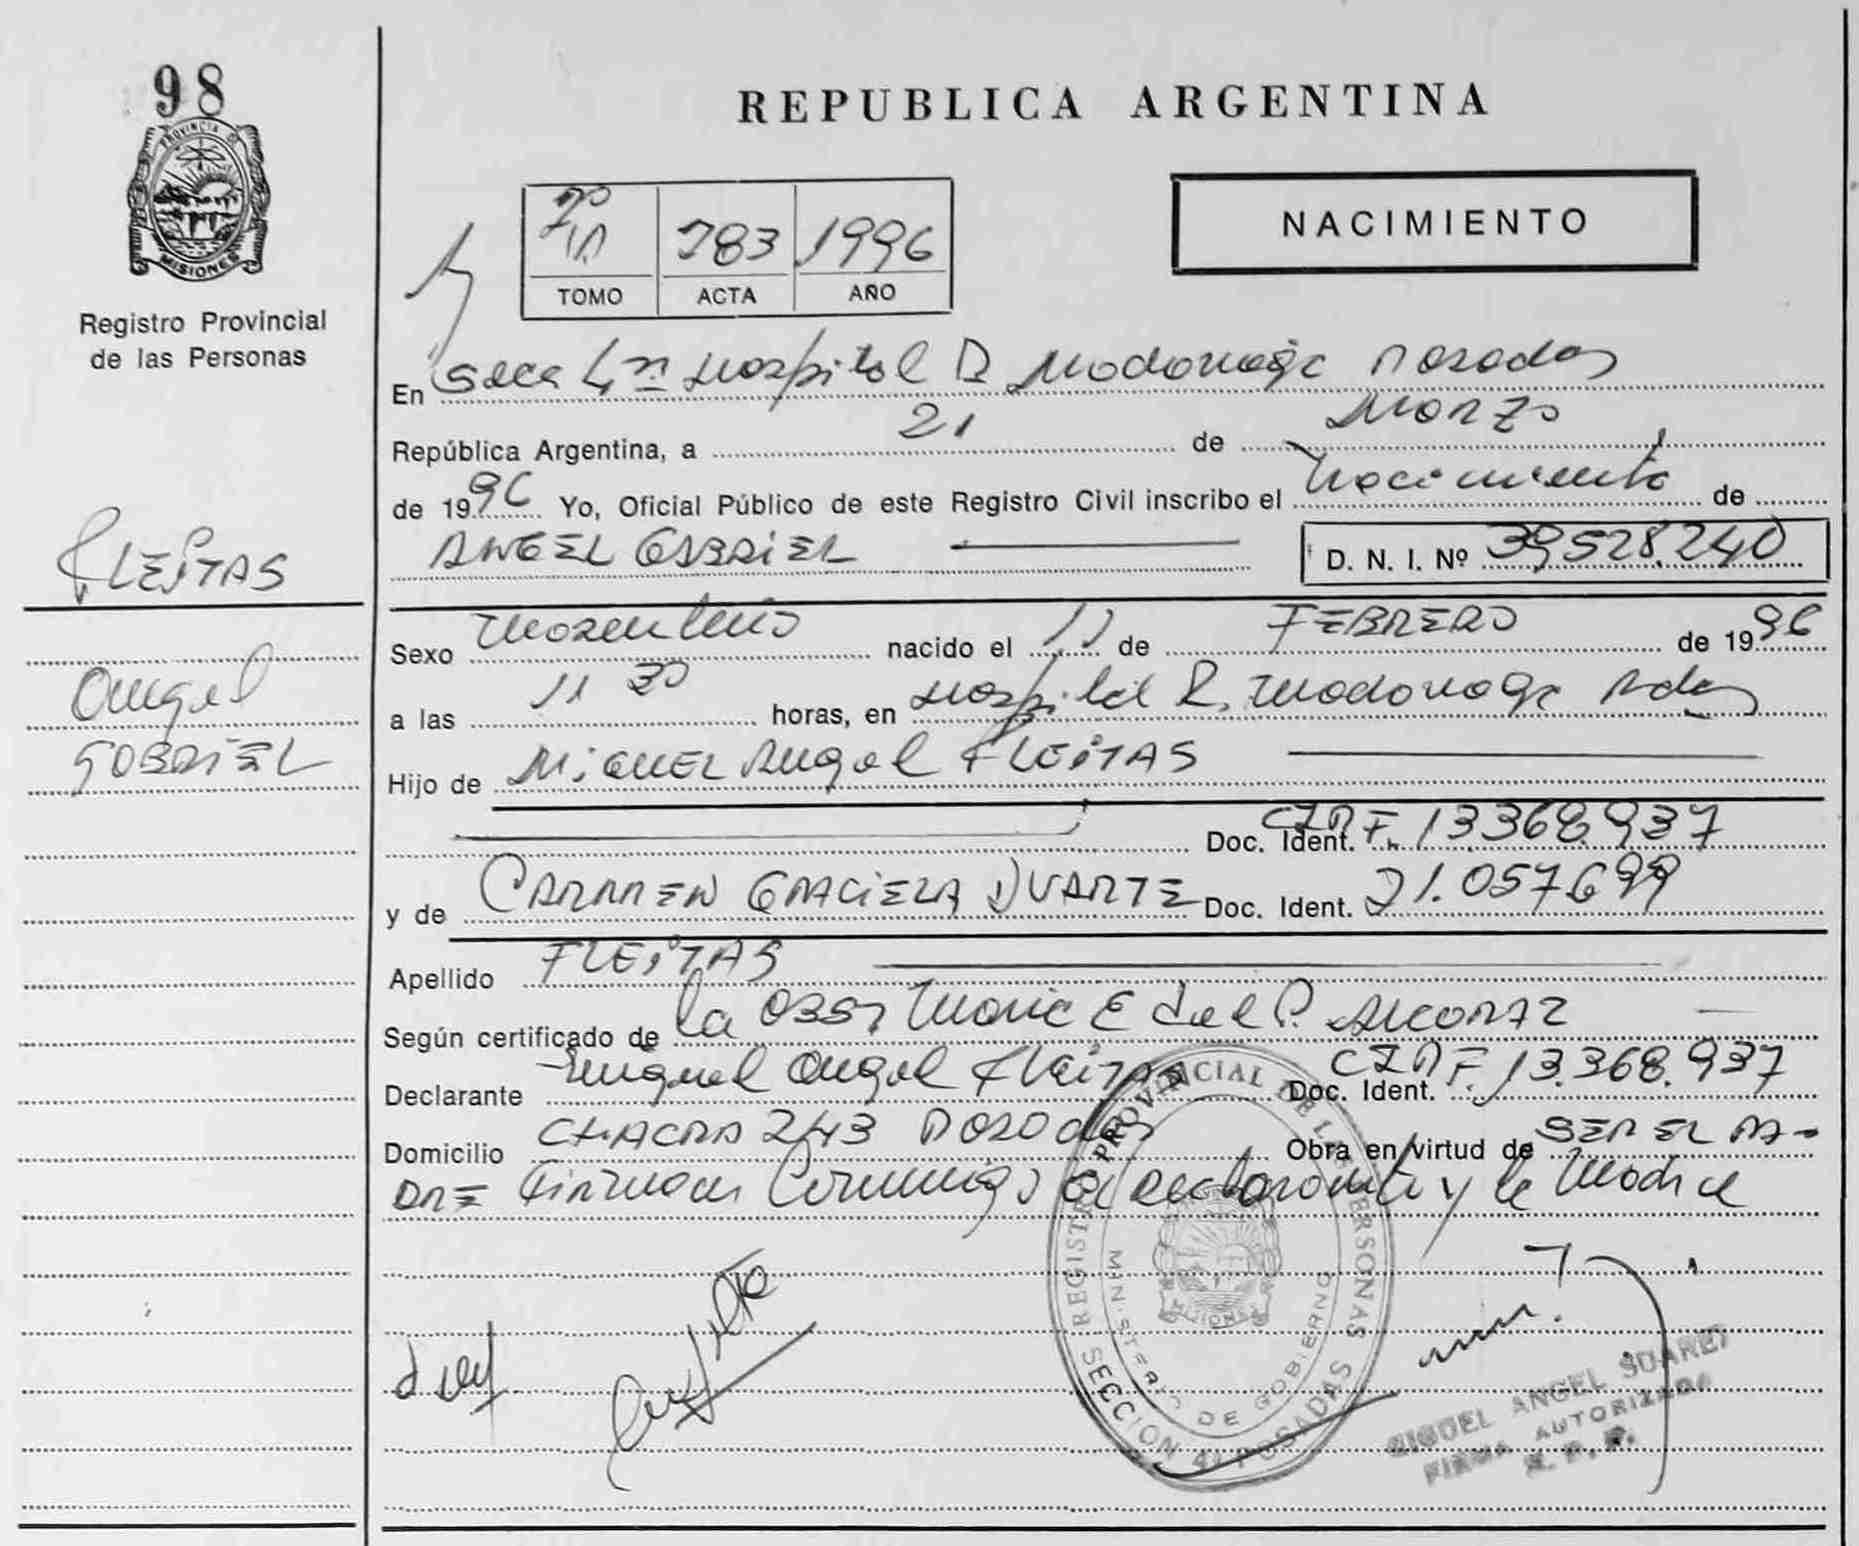 98
PROVINCIA D
MISIONES
Registro Provincial
de las Personas
FLEITAS
Angel
GABRIEL
REPUBLICA ARGENTINA
NACIMIENTO
783 1996
TOMO ACTA AÑO
En Secc 4ta Hospital R Madariaga Posadas
República Argentina, a 21 de Marzo
de 1996 Yo, Oficial Público de este Registro Civil inscribo el Nacimiento de
ANGEL GABRIEL D. N. I. Nº 39528.240
Sexo Masculino nacido el 11 de FEBRERO de 1996
a las 11 30 horas, en Hospital R. Madariaga Pdas
Hijo de MiGUEL Angel FLEiTAS
Doc. Ident. CIPF. 13.368.937
y de CARMEN GRACIELA DUARTE Doc. Ident. 21.057699
Apellido FLEiTAS
Según certificado de la Obst Maria E del P. ALCORAZ
Declarante Miguel Angel Fleitas Doc. Ident. CIPF. 13.368.937
Domicilio CHACRA 243 Posadas Obra en virtud de SER EL PA-
DRE Firman Conmigo el declarante y la Madre
REGISTRO PROVINCIAL DE LAS PERSONAS
MINISTERIO DE GOBIERNO
MISIONES
SECCION 4ta POSADAS
MIGUEL ANGEL SUAREZ
FIRMA AUTORIZADA
R. P. P.